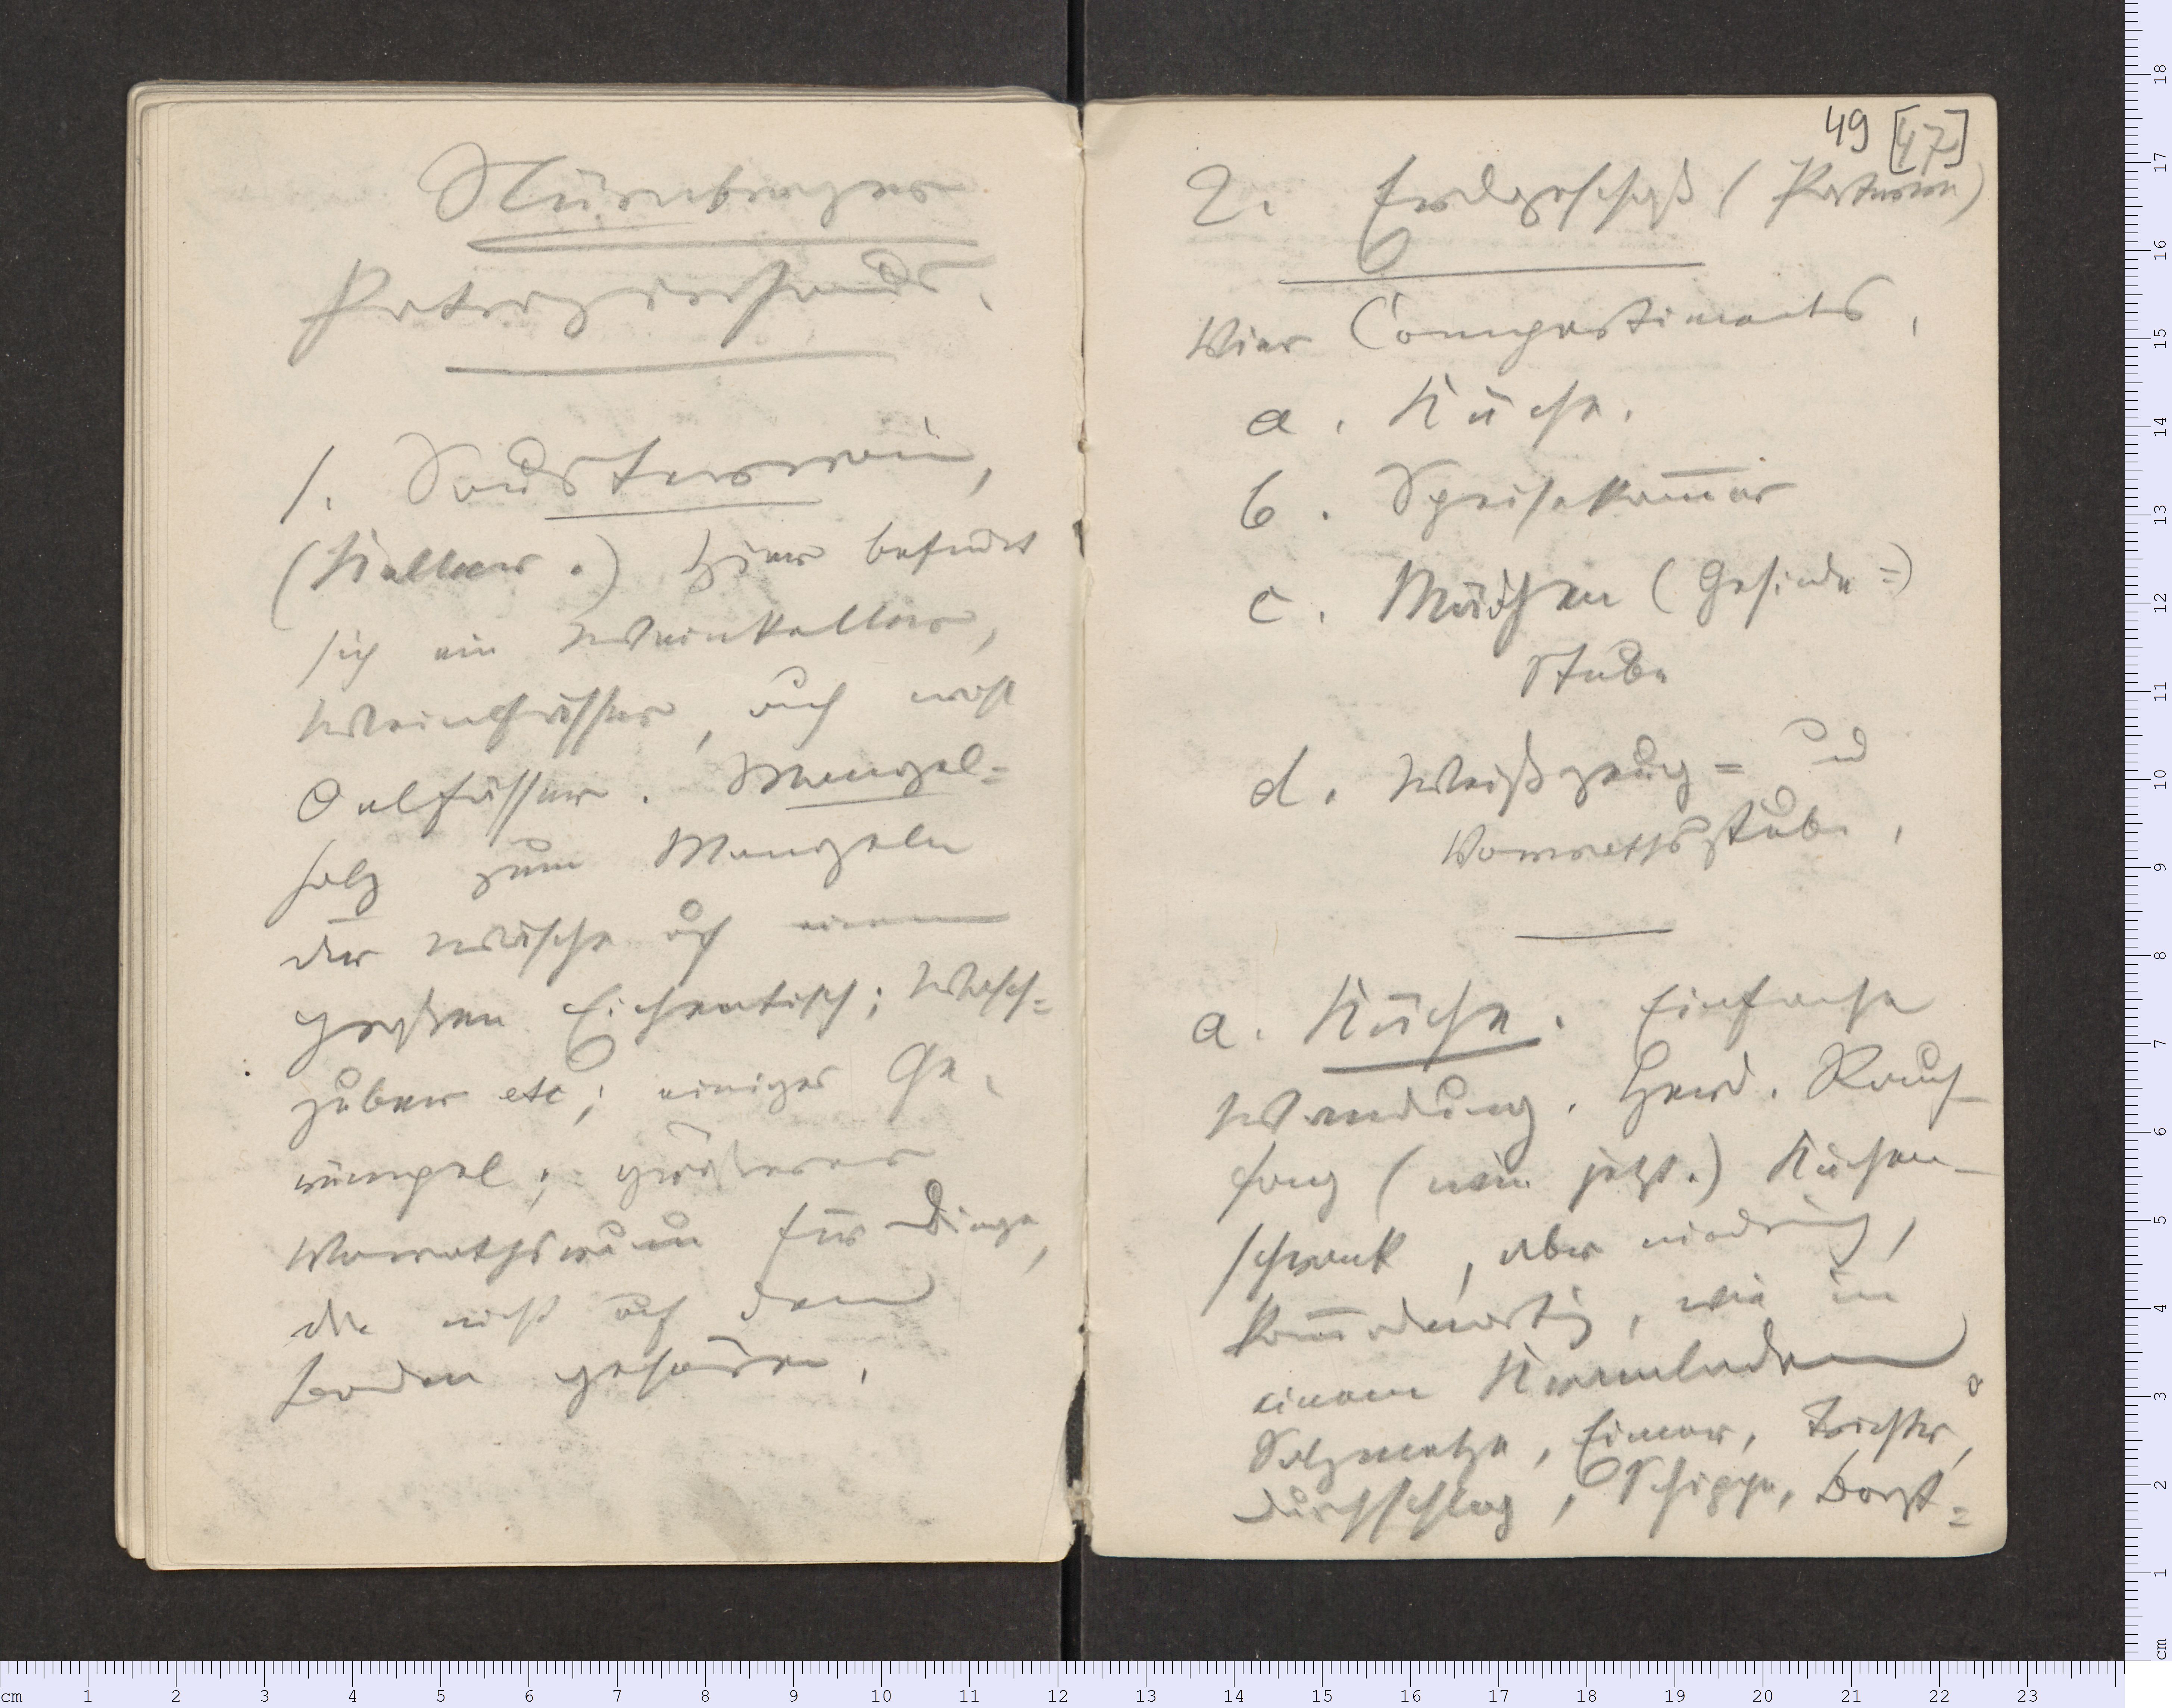 Nürnberger
Patrizierhaus.
1. Sousterrain,
(Keller.) Hier befindet
sich ein Weinkeller,
Weinfässer, auch wohl
Oelfässer. Mangel-
holz zum Mangeln
der Wäsche auf einem
großen Eichentisch; Wasch-
zuber etc; einiges Ge-
rümpel; größerer
Vorrathsraum für Dinge,
die nicht auf den
Boden gehören.
49 [47]
2. Erdgeschoß (Parterre)
Vier Compartiments,
a. Küche.
b. Speisekam̅er
c. Mädchen (Gesinde-)
Stube
d. Weißzeug- und
Vorrathsstube,
a. Küche. Einfache
Wandung. Herd. Rauch-
fang (wie jetzt.) Küchen-
schrank, aber niedrig,
kom̅odenartig, wie in
einem Kramladen
Salzmetze, Eimer, Trichter,
Durchschlag, Schippe, Borst-